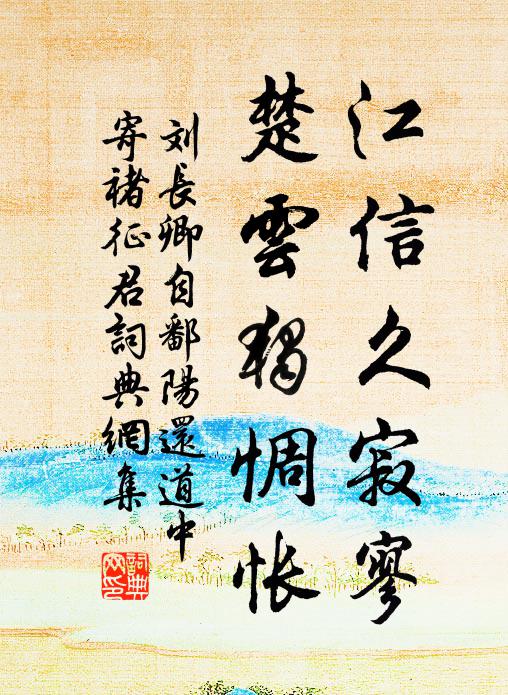 江信久寂寥
楚雲独惆怅
刘長卿自鄱陽還道中
寄褚征君詞典網集
詞典网印